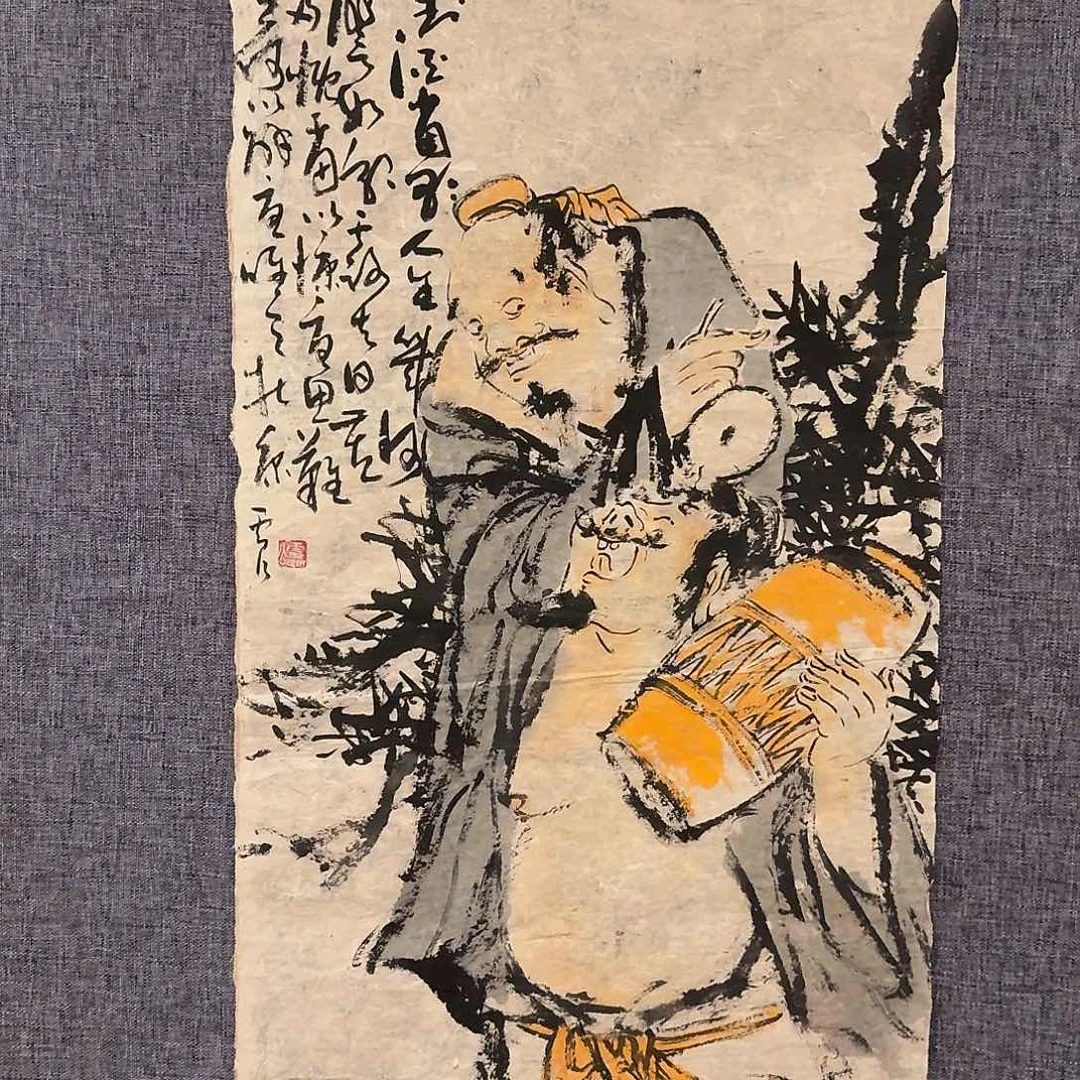 對酒當歌人生幾何
譬如朝露去日苦
多慨當以慷憂思難
忘何以解憂唯有杜康